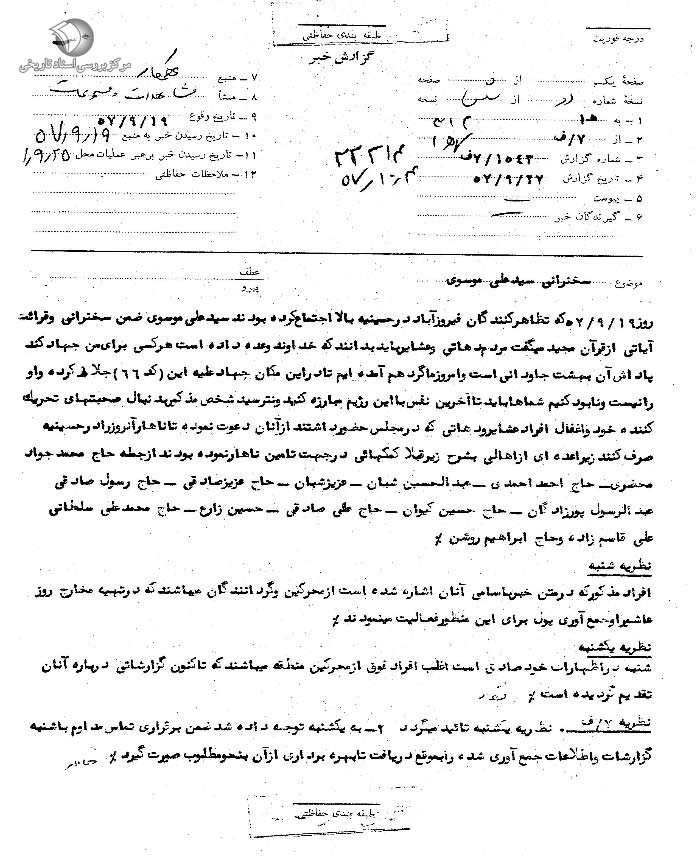 مرکز بررسی اسناد تاریخی
طبقه بندی حفاظتی
گزارش خبر
درجه فوریت
صفحهٔ یک از صفحه
نسخهٔ شماره از نسخه
۱ – به
۲ – از ۷/ف
۳ – شماره گزارش ۷/۱۰۵۴۳ف
۴ – تاریخ گزارش ۵۷/۹/۲۷
۵ – پیوست
۶ – گیرندگان خبر
۷ – منبع همکار
۸ – منشأ مشاهدات و مسموعات
۹ – تاریخ وقوع ۵۷/۹/۱۹
۱۰ – تاریخ رسیدن خبر به منبع ۵۷/۹/۱۹
۱۱ – تاریخ رسیدن خبر برهبر عملیات محل ۹/۲۵
۱۲ – ملاحظات حفاظتی
موضوع سخنرانی سید علی موسوی
عطف
پیرو
روز ۵۷/۹/۱۹ که تظاهرکنندگان فیروزآباد در حسینیه بالا اجتماع کرده بودند سید علی موسوی ضمن سخنرانی و قرائت
آیاتی از قرآن مجید میگفت مردم دهاتی وعشایر باید بدانند که خداوند وعده داده است هرکسی برای من جهاد کند
پاداش آن بهشت جاودانی است وامروز ماگرد هم آمده ایم تادر این مکان جهاد علیه این (کد ۶۶) جلاد کرده واو
را نیست ونابود کنیم شماها باید تا آخرین نفس با این رژیم مبارزه کنید ونترسید شخص مذکور بدنبال صحبتهای تحریک
کننده خود واغفال افراد عشایر ودهاتی که در مجلس حضور داشتند از آنان دعوت نموده تا ناهار آنروز را در حسینیه
صرف کنند زیرا عده ای از اهالی بشرح زیر قبلا کمکهائی در جهت تامین ناهار نموده بودند از جمله حاج محمد جواد
محضری – حاج احمد احمدی – عبدالحسین شبان – عزیز شبان – حاج عزیز صادقی – حاج رسول صادقی
عبدالرسول پورزادگان – حاج حسین کیوان – حاج علی صادقی – حسین زارع – حاج محمد علی سلطانی
علی قاسم زاده وحاج ابراهیم روشن ٪
نظریه شنبه
افراد مذکور که در متن خبر باسامی آنان اشاره شده است از محرکین وگردانندگان میباشند که در تهیه مخارج روز
عاشورا وجمع آوری پول برای این منظور فعالیت مینمودند ٪
نظریه یکشنبه
شنبه در اظهارات خود صادق است اغلب افراد فوق از محرکین منطقه میباشند که تاکنون گزارشاتی درباره آنان
تقدیم گردیده است ٪
نظریه ۷/ف . نظریه یکشنبه تائید میگردد ۲– به یکشنبه توجه داده شد ضمن برقراری تماس مداوم باشنبه
گزارشات واطلاعات جمع آوری شده را بموقع دریافت تابهره برداری از آن بنحو مطلوب صورت گیرد ٪
طبقه بندی حفاظتی